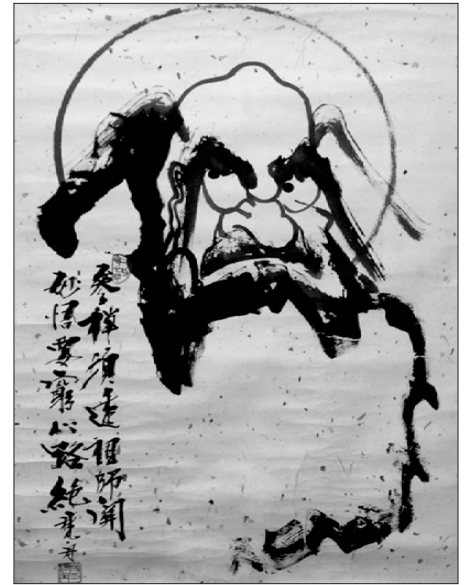 参禪須透祖師関
妙悟要窮心路絶